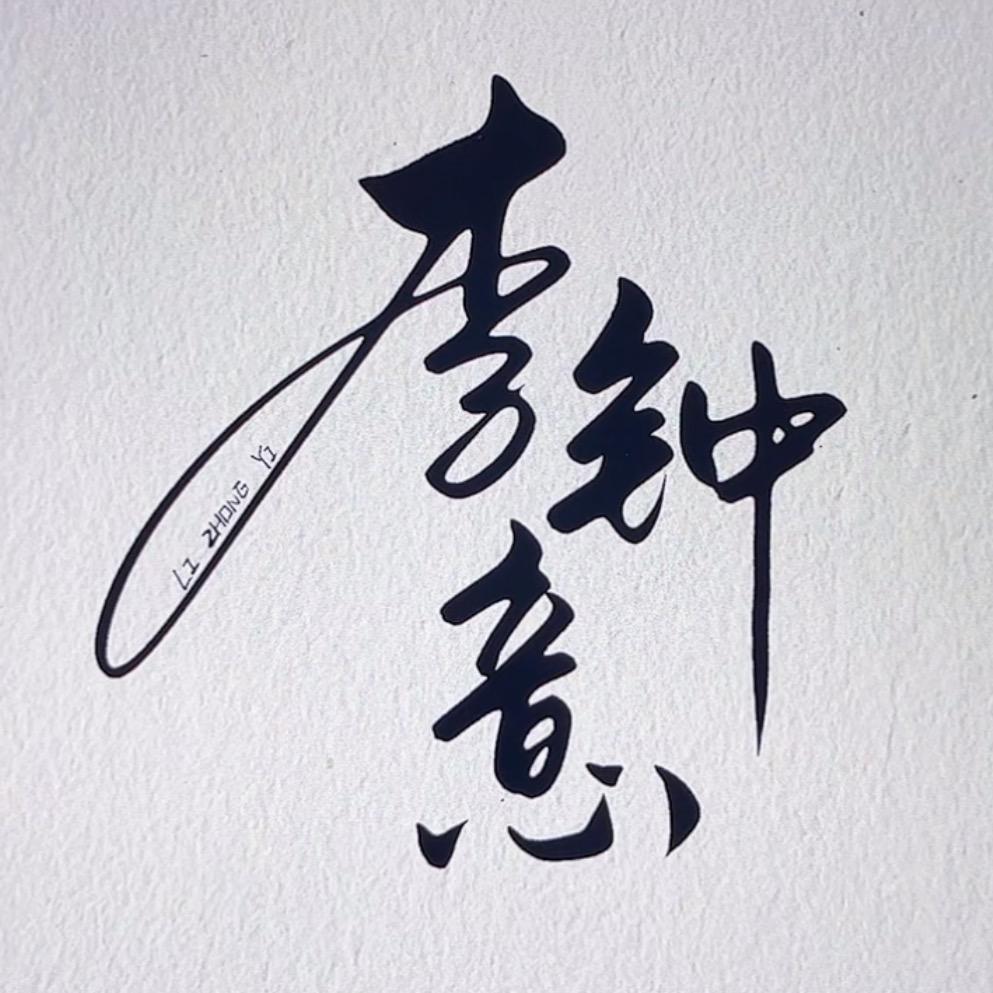 李钟意
LI ZHONG YI